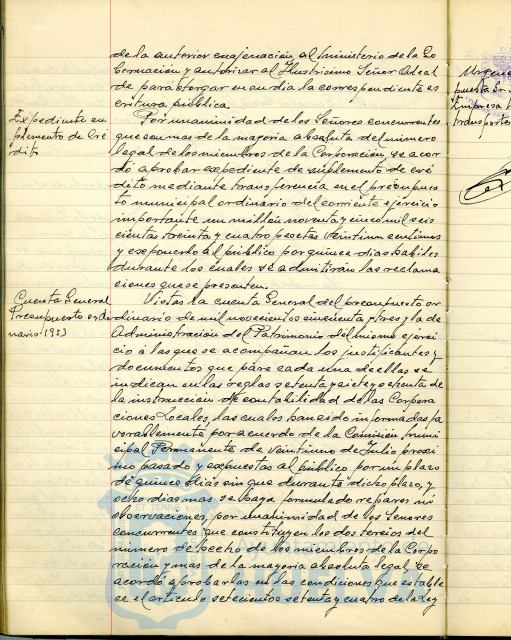 de la anterior enajenación, al Ministerio de la Go
bernación y autorizar al Ilustrisimo Señor Alcal
de para otorgar en su dia la correspondiente es
critura pública.
Expediente su
plemento de Cré
dito
Por unanimidad de los Señores concurrentes
que son mas de la mayoria absoluta del número
legal de los miembros de la Corporación, se acor
dó aprobar expediente de suplemento de cré
dito mediante transferencia en el presupues
to municipal ordinario del corriente ejercicio
importante un millón noventa y cinco mil seis
cientas treinta y cuatro pesetas veintiun centimos
y exponerlo al público por quince dias habiles
durante los cuales se admitirán las reclama
ciones que se presenten.
Cuenta General
Presupuesto ordi
nario 1953
Vistas la cuenta General del presupuesto or
dinario de mil novecientos cincuenta y tres y la de
Administración del Patrimonio del mismo ejerci
cio á las que se acompañan los justificantes y
documentos que para cada una de ellas se
indican en las reglas setenta y siete y setenta de
la instrucción de contabilidad de las Corpora
ciones Locales, las cuales han sido informadas fa
vorablemente por acuerdo de la Comisión Muni
cipal Permanente de veintiuno de Julio proxi
mo pasado y expuestas al público por un plazo
de quince dias sin que durante dicho plazo, y
ocho dias mas se haya formulado reparos ni
observaciones, por unanimidad de los Señores
concurrentes que constituyen los dos tercios del
número de hecho de los miembros de la Corpo
ración y mas de la mayoria absoluta legal se
acordó aprobarlas en las condiciones que estable
ce el articulo setecientos setenta y cuatro de la Ley
Urgenc
puesta Sr.
Empresa
transporte